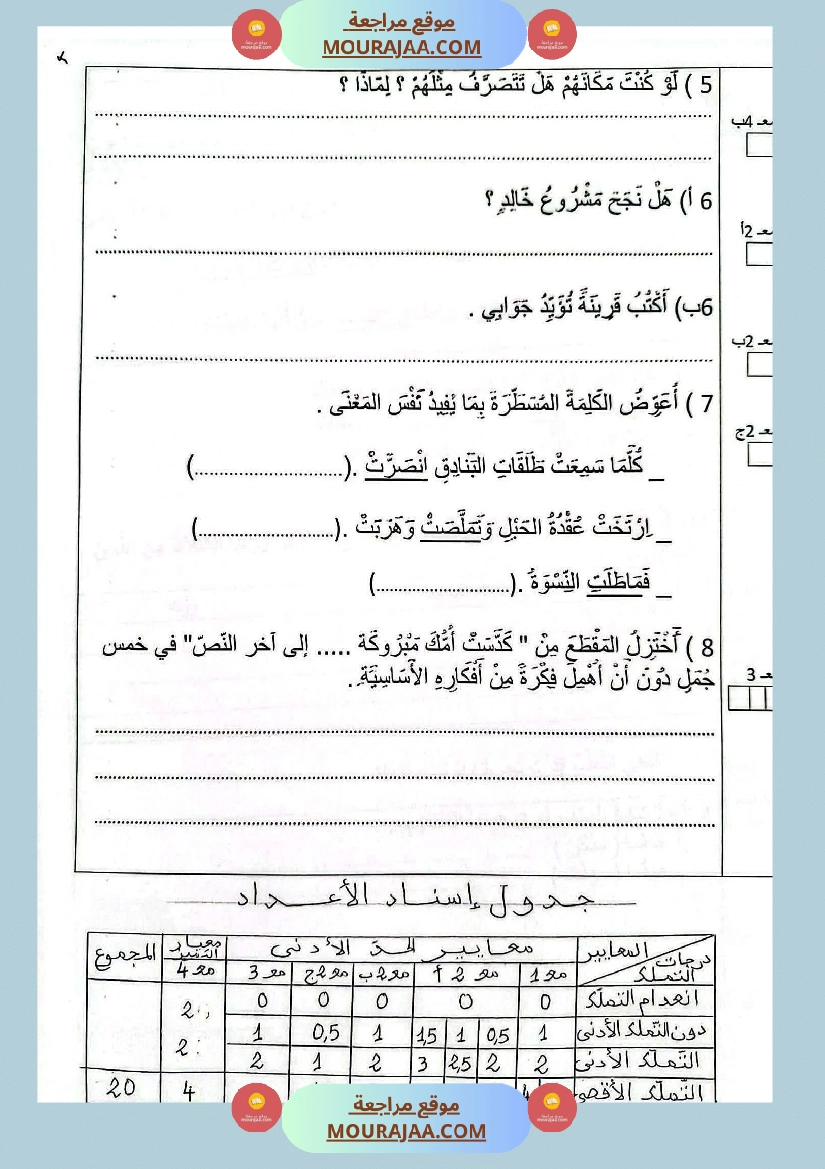 موقع مراجعة
MOURAJAA.COM
5 ) لَوْ كُنْتَ مَكَانَهُمْ هَلْ تَتَصَرَّفُ مِثْلَهُمْ ؟ لِمَاذَا ؟
معـ 4ب
6 أ) هَلْ نَجَحَ مَشْرُوعُ خَالِدٍ ؟
معـ 2أ
6ب) أَكْتُبُ قَرِينَةً تُؤَيِّدُ جَوَابِي .
معـ 2ب
7 ) أُعَوِّضُ الكَلِمَةَ المُسَطَّرَةَ بِمَا يُفِيدُ نَفْسَ المَعْنَى .
معـ 2ج
_ كُلَّمَا سَمِعَتْ طَلَقَاتِ البَنَادِقِ انْصَرَّتْ .(............................)
_ اِرْتَخَتْ عُقْدَةُ الحَبْلِ وَتَمَلَّصَتْ وَهَرَبَتْ .(............................)
_ فَمَاطَلَتِ النِّسْوَةُ .(............................)
8 ) أَخْتَزِلُ المَقْطَعَ مِنْ " كَدَّسَتْ أُمُّكَ مَبْرُوكَة ..... إلى آخر النّصّ" في خمس
جُمَلٍ دُونَ أَنْ أُهْمِلَ فِكْرَةً مِنْ أَفْكَارِهِ الأَسَاسِيَّةِ .
معـ 3
جدول إسناد الأعداد
المعايير درجات التملك معايير الحدّ الأدنى معيار التميز المجموع
معـ 1 معـ 2 أ معـ 2 ب معـ 2 ج معـ 3 معـ 4
انعدام التملك 0 0 0 0 0
دون التملك الأدنى 1 0,5 1 1,5 1 0,5 1 2
التملك الأدنى 2 2 2,5 3 2 1 2 2
التملك الأقصى 4 4 20
موقع مراجعة
MOURAJAA.COM